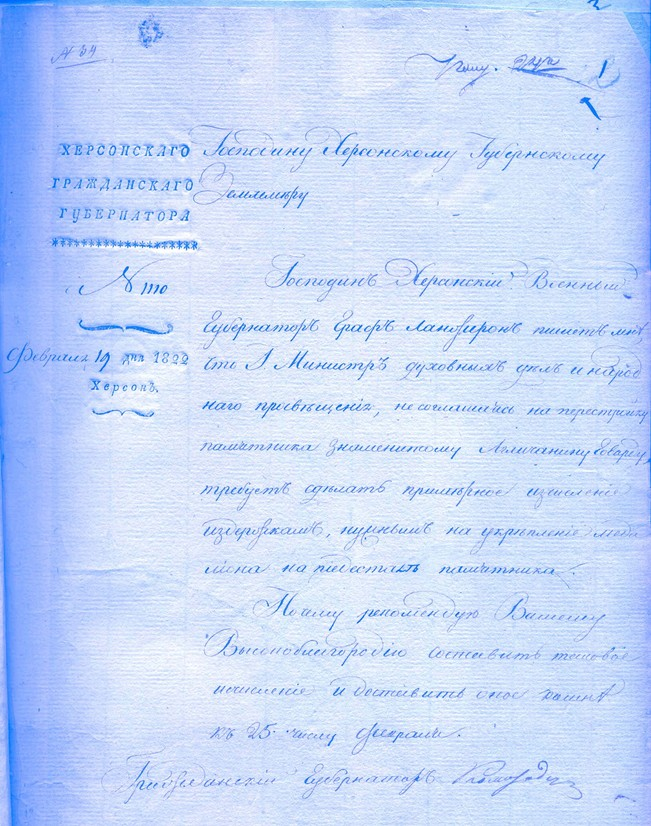 2
№ 34
1
ХЕРСОНСКАГО
ГРАЖДАНСКАГО
ГУБЕРНАТОРА
№ 1110
Февраля 19 дня 1822
Херсонъ.
Господину Херсонскому Губернскому
Землемѣру
Господинъ Херсонскій Военный
Губернаторъ Графъ Ланжеронъ пишетъ мнѣ
что Г. Министръ духовныхъ дѣлъ и народ
наго просвѣщенія, несоглашаясь на перестройку
памятника знаменитому Агличанину Говарду,
требуетъ сдѣлать примѣрное изчисленіе
издержкамъ, нужнымъ на укрѣпленіе меда
лиона на піедесталѣ памятника.
Посему рекомендую Вашему
Высокоблагородію составить таковое
исчисленіе и доставить оное комнѣ
къ 25 числу февраля.
Гражданскій Губернаторъ